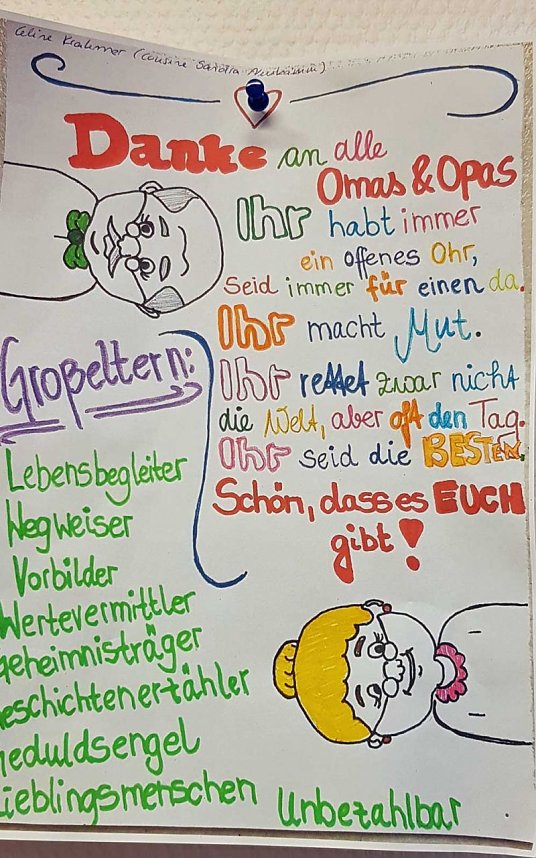 Celine Krahmer (Cousine
Danke an alle
Omas & Opas
Ihr habt immer
ein offenes Ohr,
Seid immer für einen da.
Ihr macht Mut.
Ihr rettet zwar nicht
die Welt, aber oft den Tag.
Ihr seid die BESTEN,
Schön, dass es EUCH
gibt!
Großeltern:
Lebensbegleiter
Wegweiser
Vorbilder
Wertevermittler
Geheimnisträger
eschichtenerzähler
eduldsengel
Lieblingsmenschen
Unbezahlbar